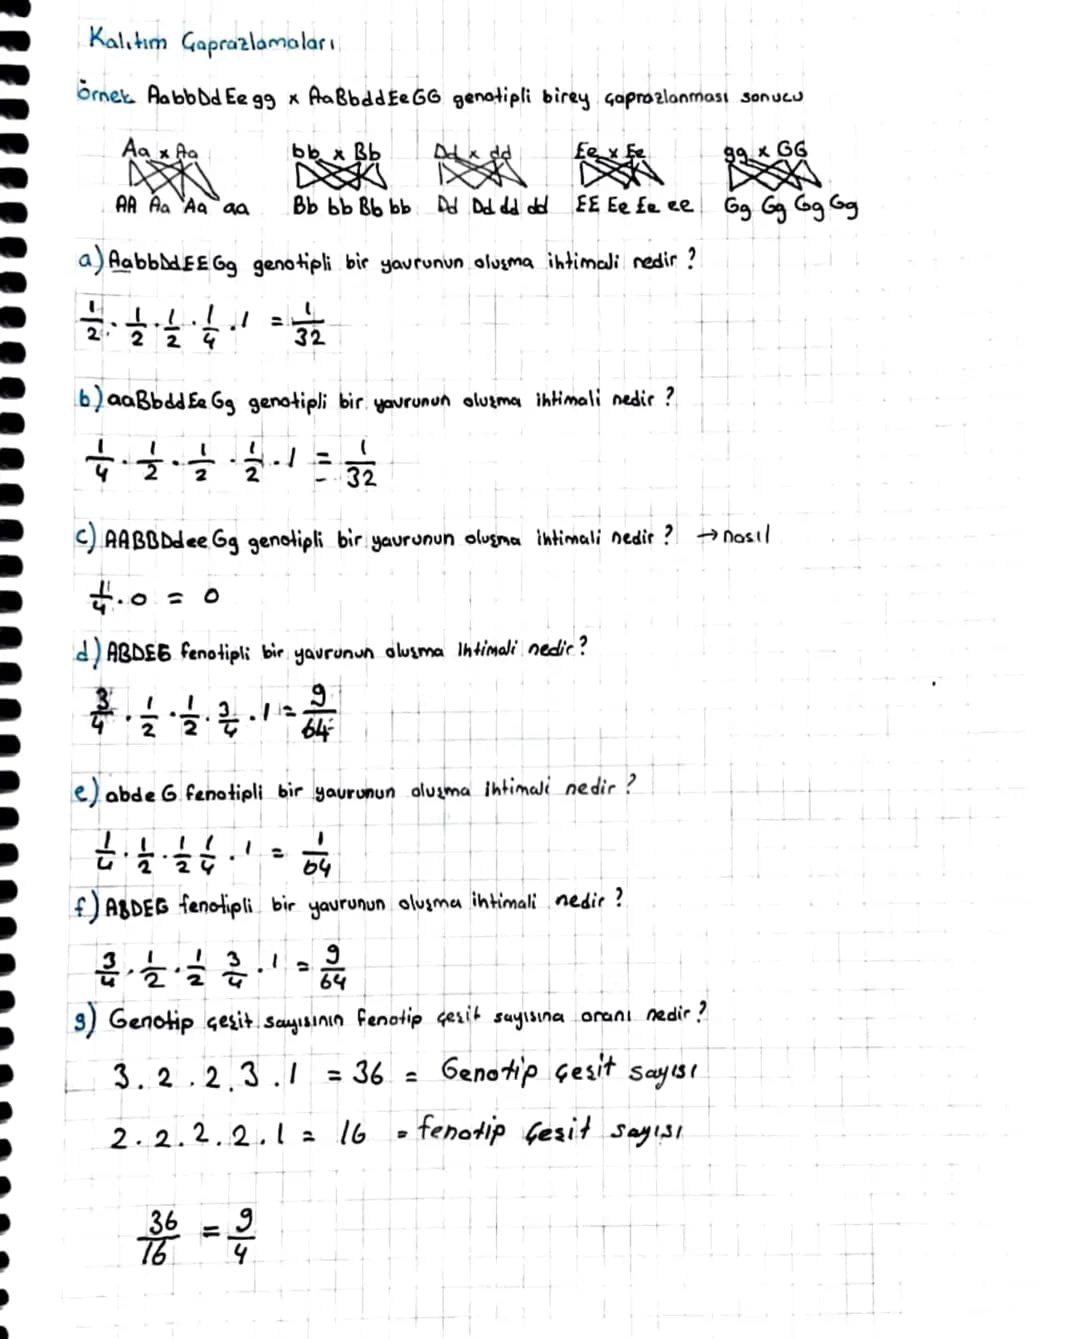 Kalıtım Çaprazlamaları
örnek AabbDdEegg x AaBbddEeGG genotipli birey çaprazlanması sonucu
Aa x Aa bb x Bb Dd x dd Ee x Ee gg x GG
AA Aa Aa aa Bb bb Bb bb Dd Dd dd dd EE Ee Ee ee Gg Gg Gg Gg
a) AabbDdEEGg genotipli bir yavrunun oluşma ihtimali nedir ?
1/2 . 1/2 . 1/2 . 1/4 . 1 = 1/32
b) aaBbddEeGg genotipli bir yavrunun oluşma ihtimali nedir ?
1/4 . 1/2 . 1/2 . 1/2 . 1 = 1/32
c) AABBDdeeGg genotipli bir yavrunun oluşma ihtimali nedir ? → nasıl
1/4 . 0 = 0
d) ABDEG fenotipli bir yavrunun oluşma ihtimali nedir ?
3/4 . 1/2 . 1/2 . 3/4 . 1 = 9/64
e) abde G fenotipli bir yavrunun oluşma ihtimali nedir ?
1/4 . 1/2 . 1/2 1/4 . 1 = 1/64
f) ABDEG fenotipli bir yavrunun oluşma ihtimali nedir ?
3/4 . 1/2 . 1/2 3/4 . 1 = 9/64
g) Genotip çeşit sayısının fenotip çeşit sayısına oranı nedir ?
3 . 2 . 2 . 3 . 1 = 36 = Genotip çeşit sayısı
2 . 2 . 2 . 2 . 1 = 16 = fenotip çeşit sayısı
36/16 = 9/4